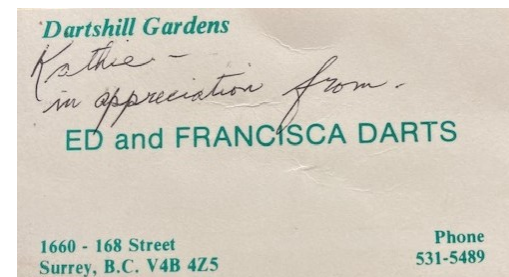 Dartshill Gardens
Kathie -
in appreciation from.
ED and FRANCISCA DARTS
1660 - 168 Street
Surrey, B.C. V4B 4Z5
Phone
531-5489